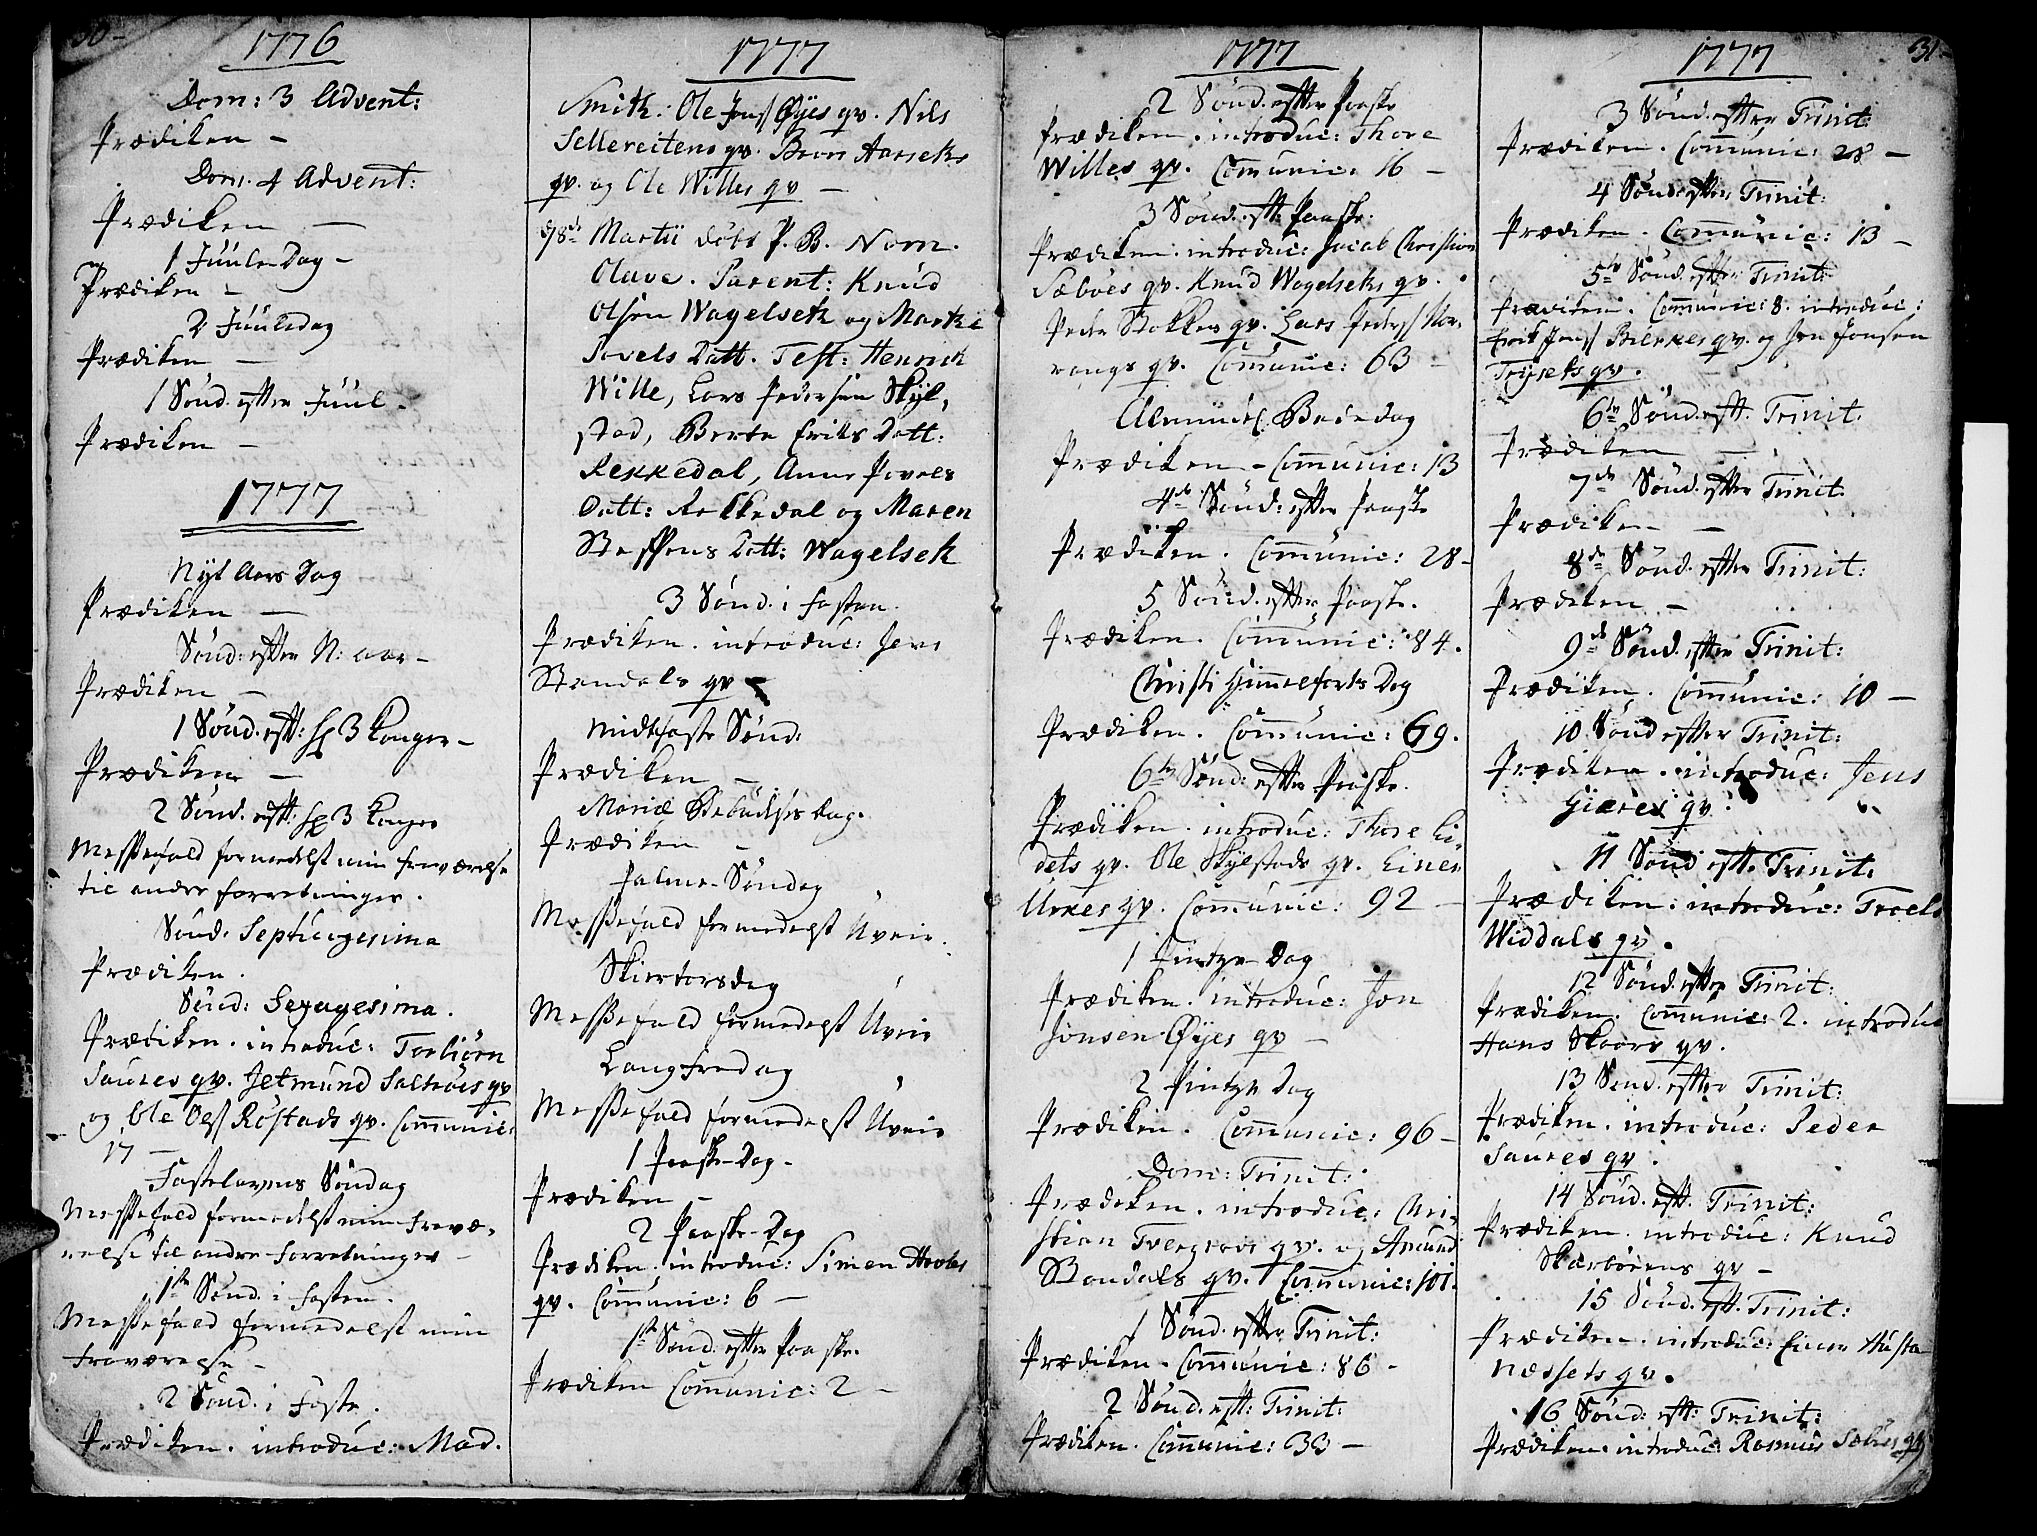 30-
1776
Dom: 3 Advent:
Prædiken -
Dom. 4 Advent:
Prædiken -
1 Juule Dag -
Prædiken -
2 Juuledag
Prædiken -
1 Sønd. efter Juul.
Prædiken -
1777
Nyt Aars Dag
Prædiken -
Sønd: efter N: aar -
Prædiken -
1 Sønd. eft: H 3 Konger -
Prædiken -
2 Sønd. eft. H 3 Konger
Messefald formedelst min fraværelse
til andre forretninger.
Sønd. Septuagesima
Prædiken.
Sønd: Sexagesima.
Prædiken. introduc: Torbiørn
Saures qv. Jetmund Saltrøes qv
og Ole Olss Røstads qv. Communic:
17 -
Fastelavens Søndag
Messefald formedelst min fravæ-
relse til andre forretninger -
1ste Sønd. i Fasten.
Messefald formedelst min
fraværelse -
2 Sønd. i Faste.
Prædiken. introduc: Mad.
1777
Smith. Ole Jonss Øyes qv. Nils
Sellereitens qv. Brors Aarseks
qv. og Ole Willes qv -
d 8de Martii døbt P. B. Nom.
Olave. Parent: Knud
Olsen Wagelsek og Marthe
Povels Datt. Test: Henrich
Wille, Lars Pedersen Skyl,
stad, Berte Eriks Datt:
Rekkedal, Anne Povels
Datt: Rekkedal og Maren
Steffens Datt: Wagelsek
3 Sønd. i fasten.
Prædiken. introduc: Jens
Standals qv -
Midtfaste Sønd:
Prædiken -
Mariæ Bebudelses Dag.
Prædiken -
Palme-Søndag
Messefald formedelst Uveir.
Skiertorsdag
Messefald formedelst Uveir
Langfredag
Messefald formedelst Uveir
1 Paaske-Dag -
Prædiken -
2 Paaske-Dag
Prædiken. introduc: Simen Hovdes
qv. Communic: 6 -
1ste Sønd. efter Paaske.
Prædiken Communic: 2 -
1777
2 Sønd. efter Paaske
Prædiken. introduc: Thore
Willes qv. Communic: 16 -
3 Sønd. eft: Paaske:
Prædiken. introduc: Jacob Christian
Sæbøes qv. Knud Wagelseks qv.
Peder Stokkes qv. Lars Pederss
rangs qv. Communic: 63 -
Almindel. Bededag
Prædiken - Communic: 13
4de Sønd: efter Paaske
Prædiken. Communic: 28 -
5 Sønd. efter Paaske.
Prædiken. Communic: 84.
Christi Himmelfarts Dag
Prædiken. Communic: 69.
6te Sønd: efter Paaske.
Prædiken. introduc: Thore Ei-
dets qv. Ole Skylstads qv. Einer
Urkes qv. Communic: 92 -
1 Pintze Dag
Prædiken. introduc: Jon
Jonsen Øyes qv -
2 Pintze Dag
Prædiken. Communic: 96 -
Dom: Trinit:
Prædiken. introduc: Chri-
stian Tvergroes qv. og Amund
Standals qv. Communic: 101.
1 Sønd. efter Trinit:
Prædiken. Communic: 86 -
2 Sønd. eft: Trinit:
Prædiken. Communic: 33 -
1777
31
3 Sønd. efter Trinit:
Prædiken. Communic: 28 -
4 Sønd. efter Trinit:
Prædiken. Communic: 13 -
5te Sønd. efter Trinit:
Prædiken. Communic: 8. introduc:
Erik Jonss Bierkes qv. og Jon Jonsen
Tryseks qv.
6te Sønd. eft. Trinit.
Prædiken -
7de Sønd. efter Trinit.
Prædiken -
8de Sønd. efter Trinit:
Prædiken -
9de Sønd. efter Trinit:
Prædiken. Communic: 10 -
10 Sønd efter Trinit:
Prædiken. introduc: Jens
Giæres qv.
11 Sønd eft. Trinit:
Prædiken: introduc: Troels
Widdals qv.
12 Sønd. efter Trinit:
Prædiken. Communic: 2. introduc
Hans Skaars qv.
13 Sønd. efter Trinit:
Prædiken. introduc: Peder
Saures qv.
14 Sønd. eft. Trinit:
Prædiken. introduc: Knud
Skarbøens qv -
15 Sønd. eft. Trinit:
Prædiken. introduc: Einer Husta
næssets qv.
16 Sønd: eft: Trinit:
Prædiken. introduc: Rasmus Sæbøes qv